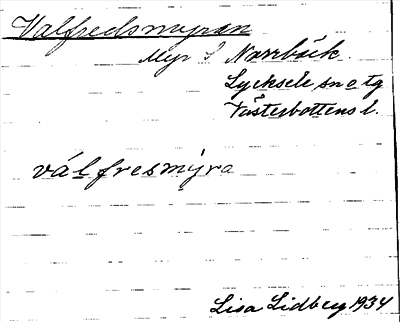 Valfredsmyran
Myr S Norrbäck
Lycksele sn o tg
Västerbottens l.
válfresmýra
Lisa Lidberg 1934